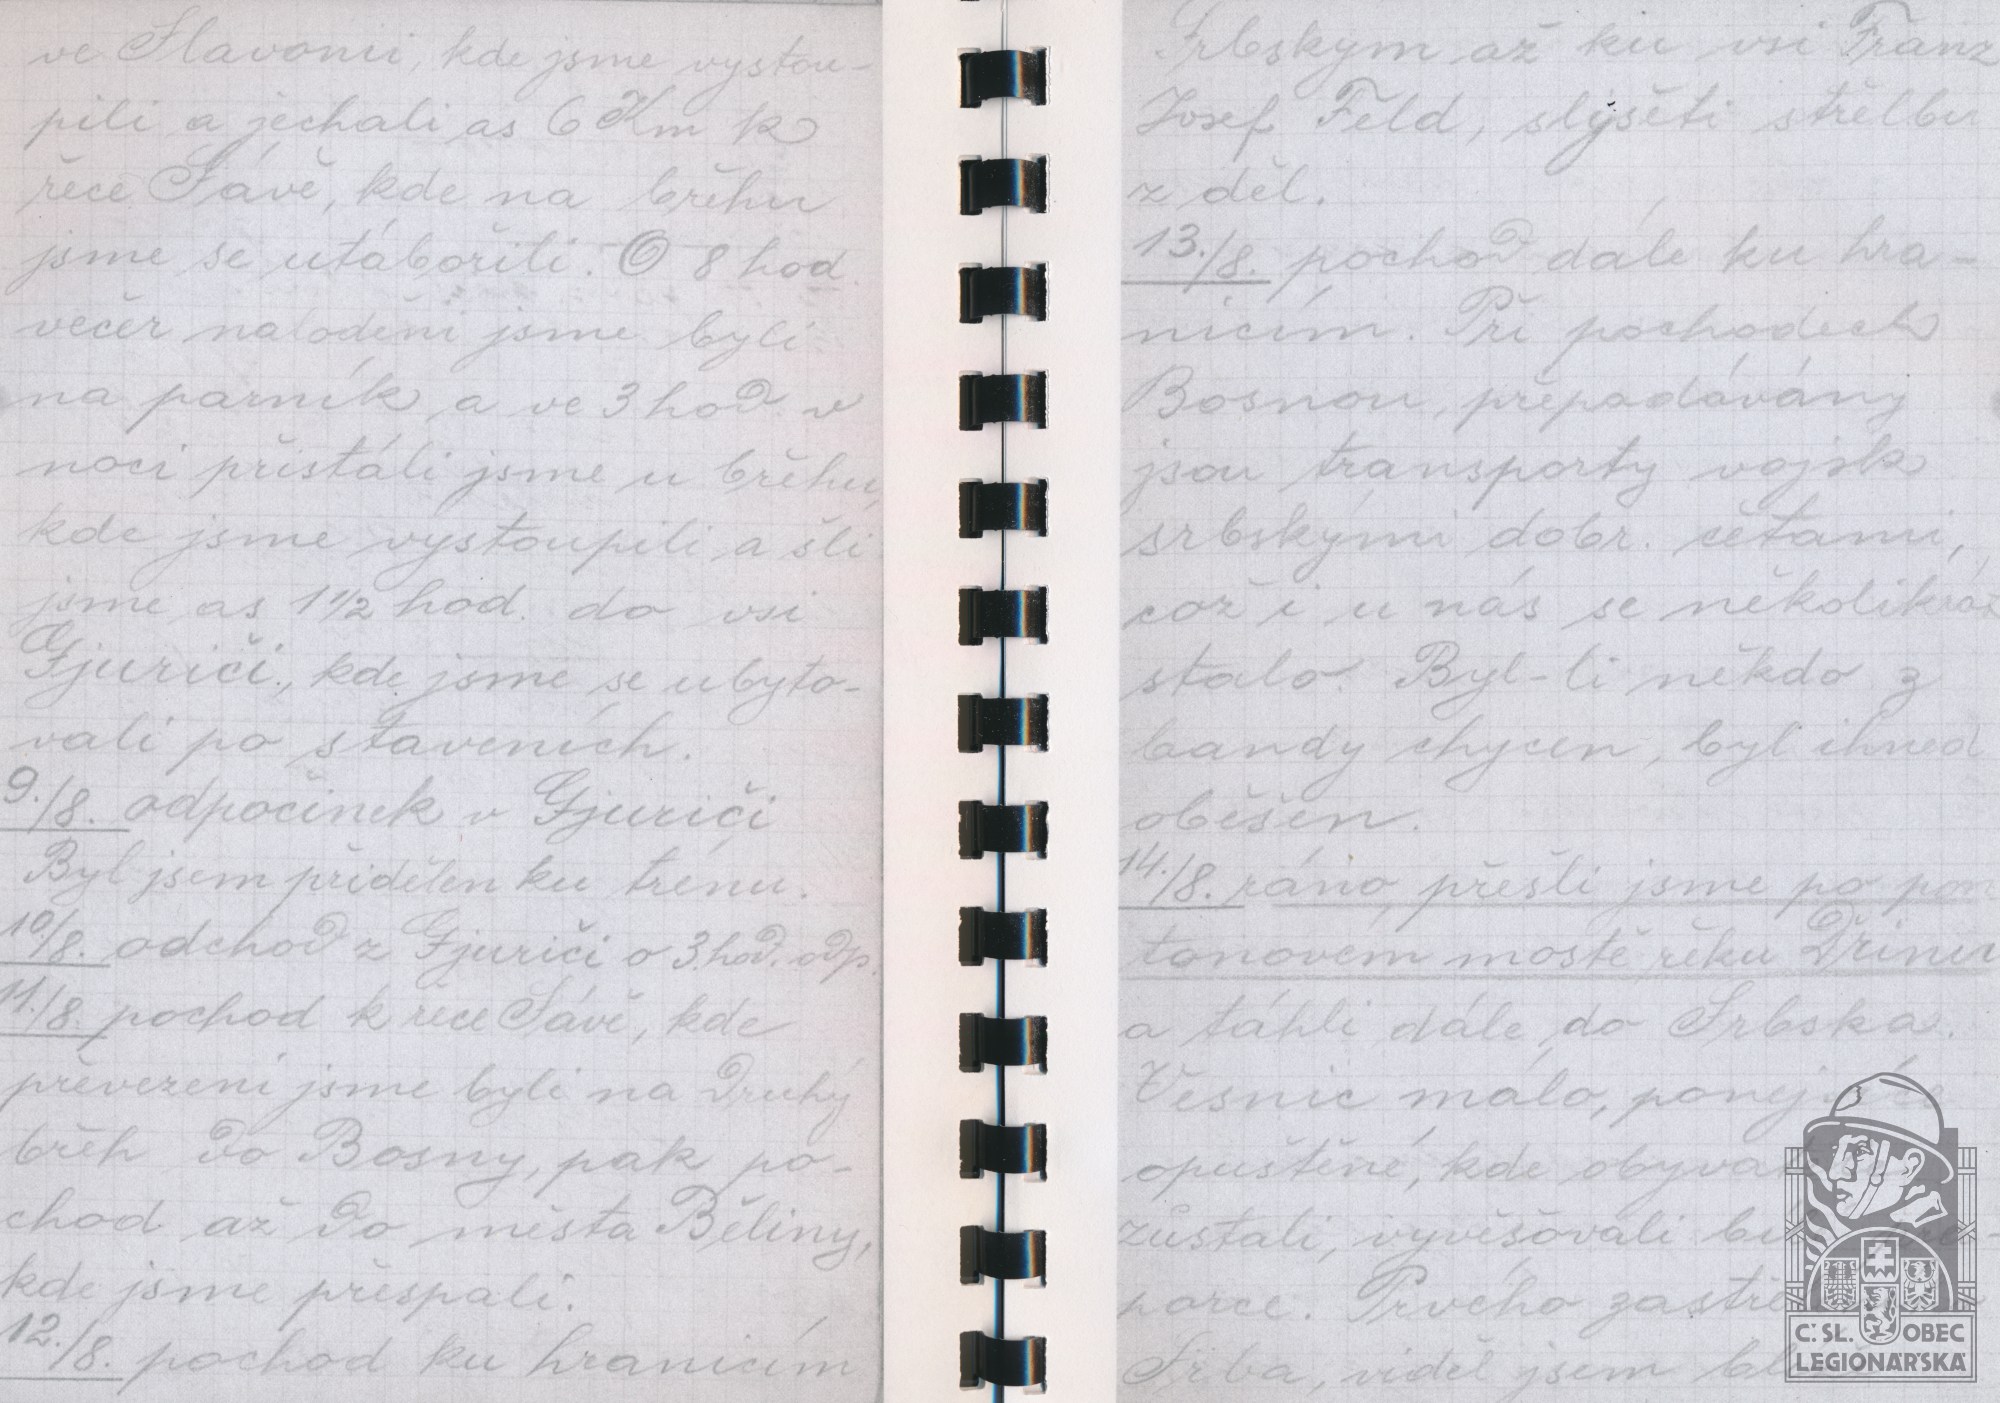 ve Slavonii, kde jsme vystou-
pili a jechali as 6 Km k
řece Sávě, kde na břehu
jsme se utábořili. O 8 hod.
večer nalodeni jsme byli
na parník a ve 3 hod. v
noci přistáli jsme u břehu,
kde jsme vystoupili a šli
jsme as 1 1/2 hod. do vsi
Gjuriči, kde jsme se ubyto-
vali po staveních.
9./8. odpočinek v Gjuriči
Byl jsem přidělen ku trénu.
10/8. odchod z Gjuriči o 3. hod. odp.
11./8. pochod k řece Sávě, kde
převezeni jsme byli na druhý
břeh do Bosny, pak po-
chod až do města Běliny,
kde jsme přespali.
12./8. pochod ku hranicím
Srbským až ku vsi Franz
Josef Feld, slyšeti střelbu
z děl.
13./8. pochod dále ku hra-
nicím. Při pochodech
Bosnou, přepadávány
jsou transporty vojsk
srbskými dobr. četami,
což i u nás se několikrát
stalo. Byl-li někdo z
bandy chycen, byl ihned
oběšen.
14./8. ráno, přešli jsme po pon
tonovém mostě řeku Drinu
a táhli dále do Srbska.
Vesnic málo,
opuštěné, kde
zůstali, vyvěšovali
porce. Prvého
Srba, viděl jsem
Č. SL. OBEC
LEGIONÁŘSKÁ